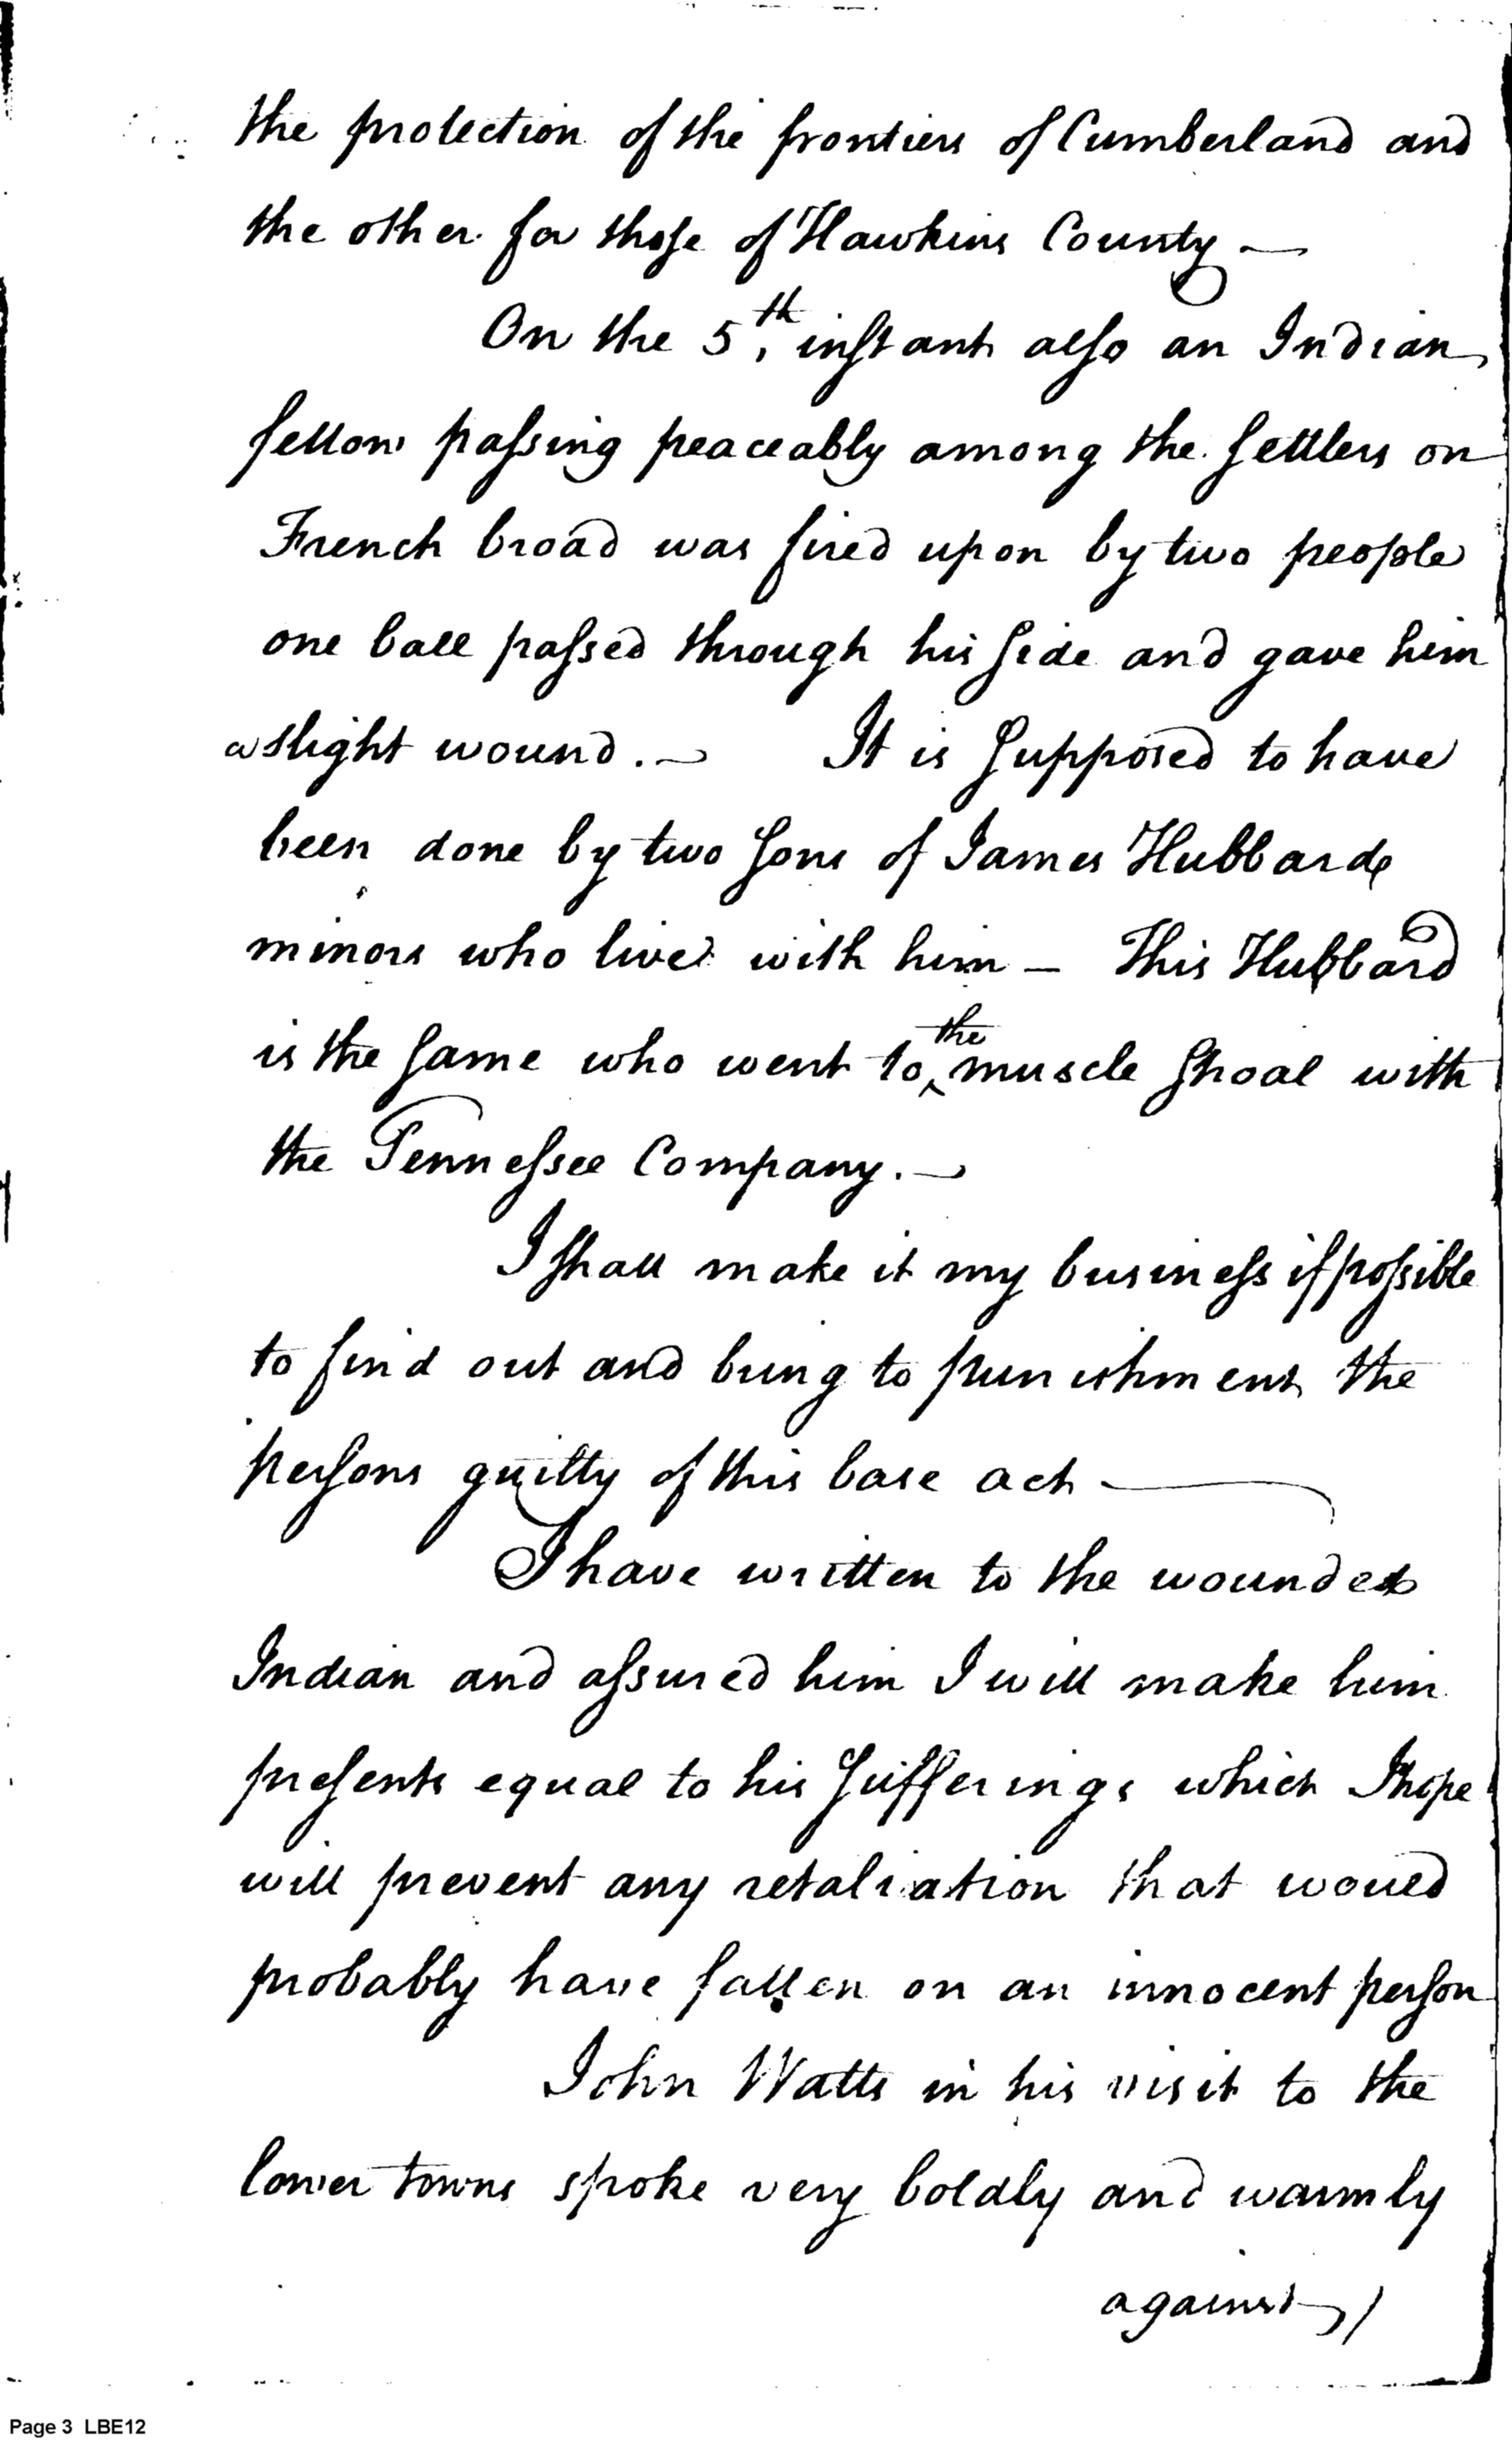 the protection of the frontiers of Cumberland and
the other for those of Hawkins County —
On the 5th. instant also an Indian
fellow passing peaceably among the settlers on
French broad was fired upon by two people
one ball passed through his side and gave him
a slight wound. — It is supposed to have
been done by two sons of James Hubbards
minors who live with him — This Hubbard
is the same who went to ^the muscle shoal with
the Tennessee Company. —
I shall make it my business if possible
to find out and bring to punishment the
persons guilty of this base act —
I have written to the wounded
Indian and assured him I will make him
presents equal to his sufferings which I hope
will prevent any retaliation that would
probably have fallen on an innocent person
John Watts in his visit to the
lower towns spoke very boldly and warmly
against /
Page 3 LBE12